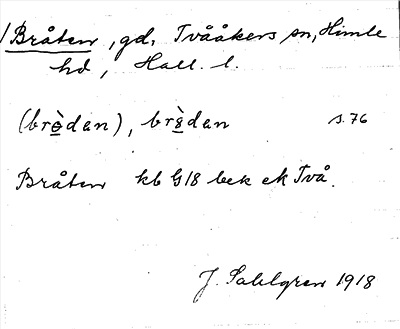 Bråten, gd, Tvååkers sn, Himle
hd, Hall. l.
(brò̱dan), brò̱dan s. 76
Bråten kb G18 bek ek Två.
J. Sahlgren 1918